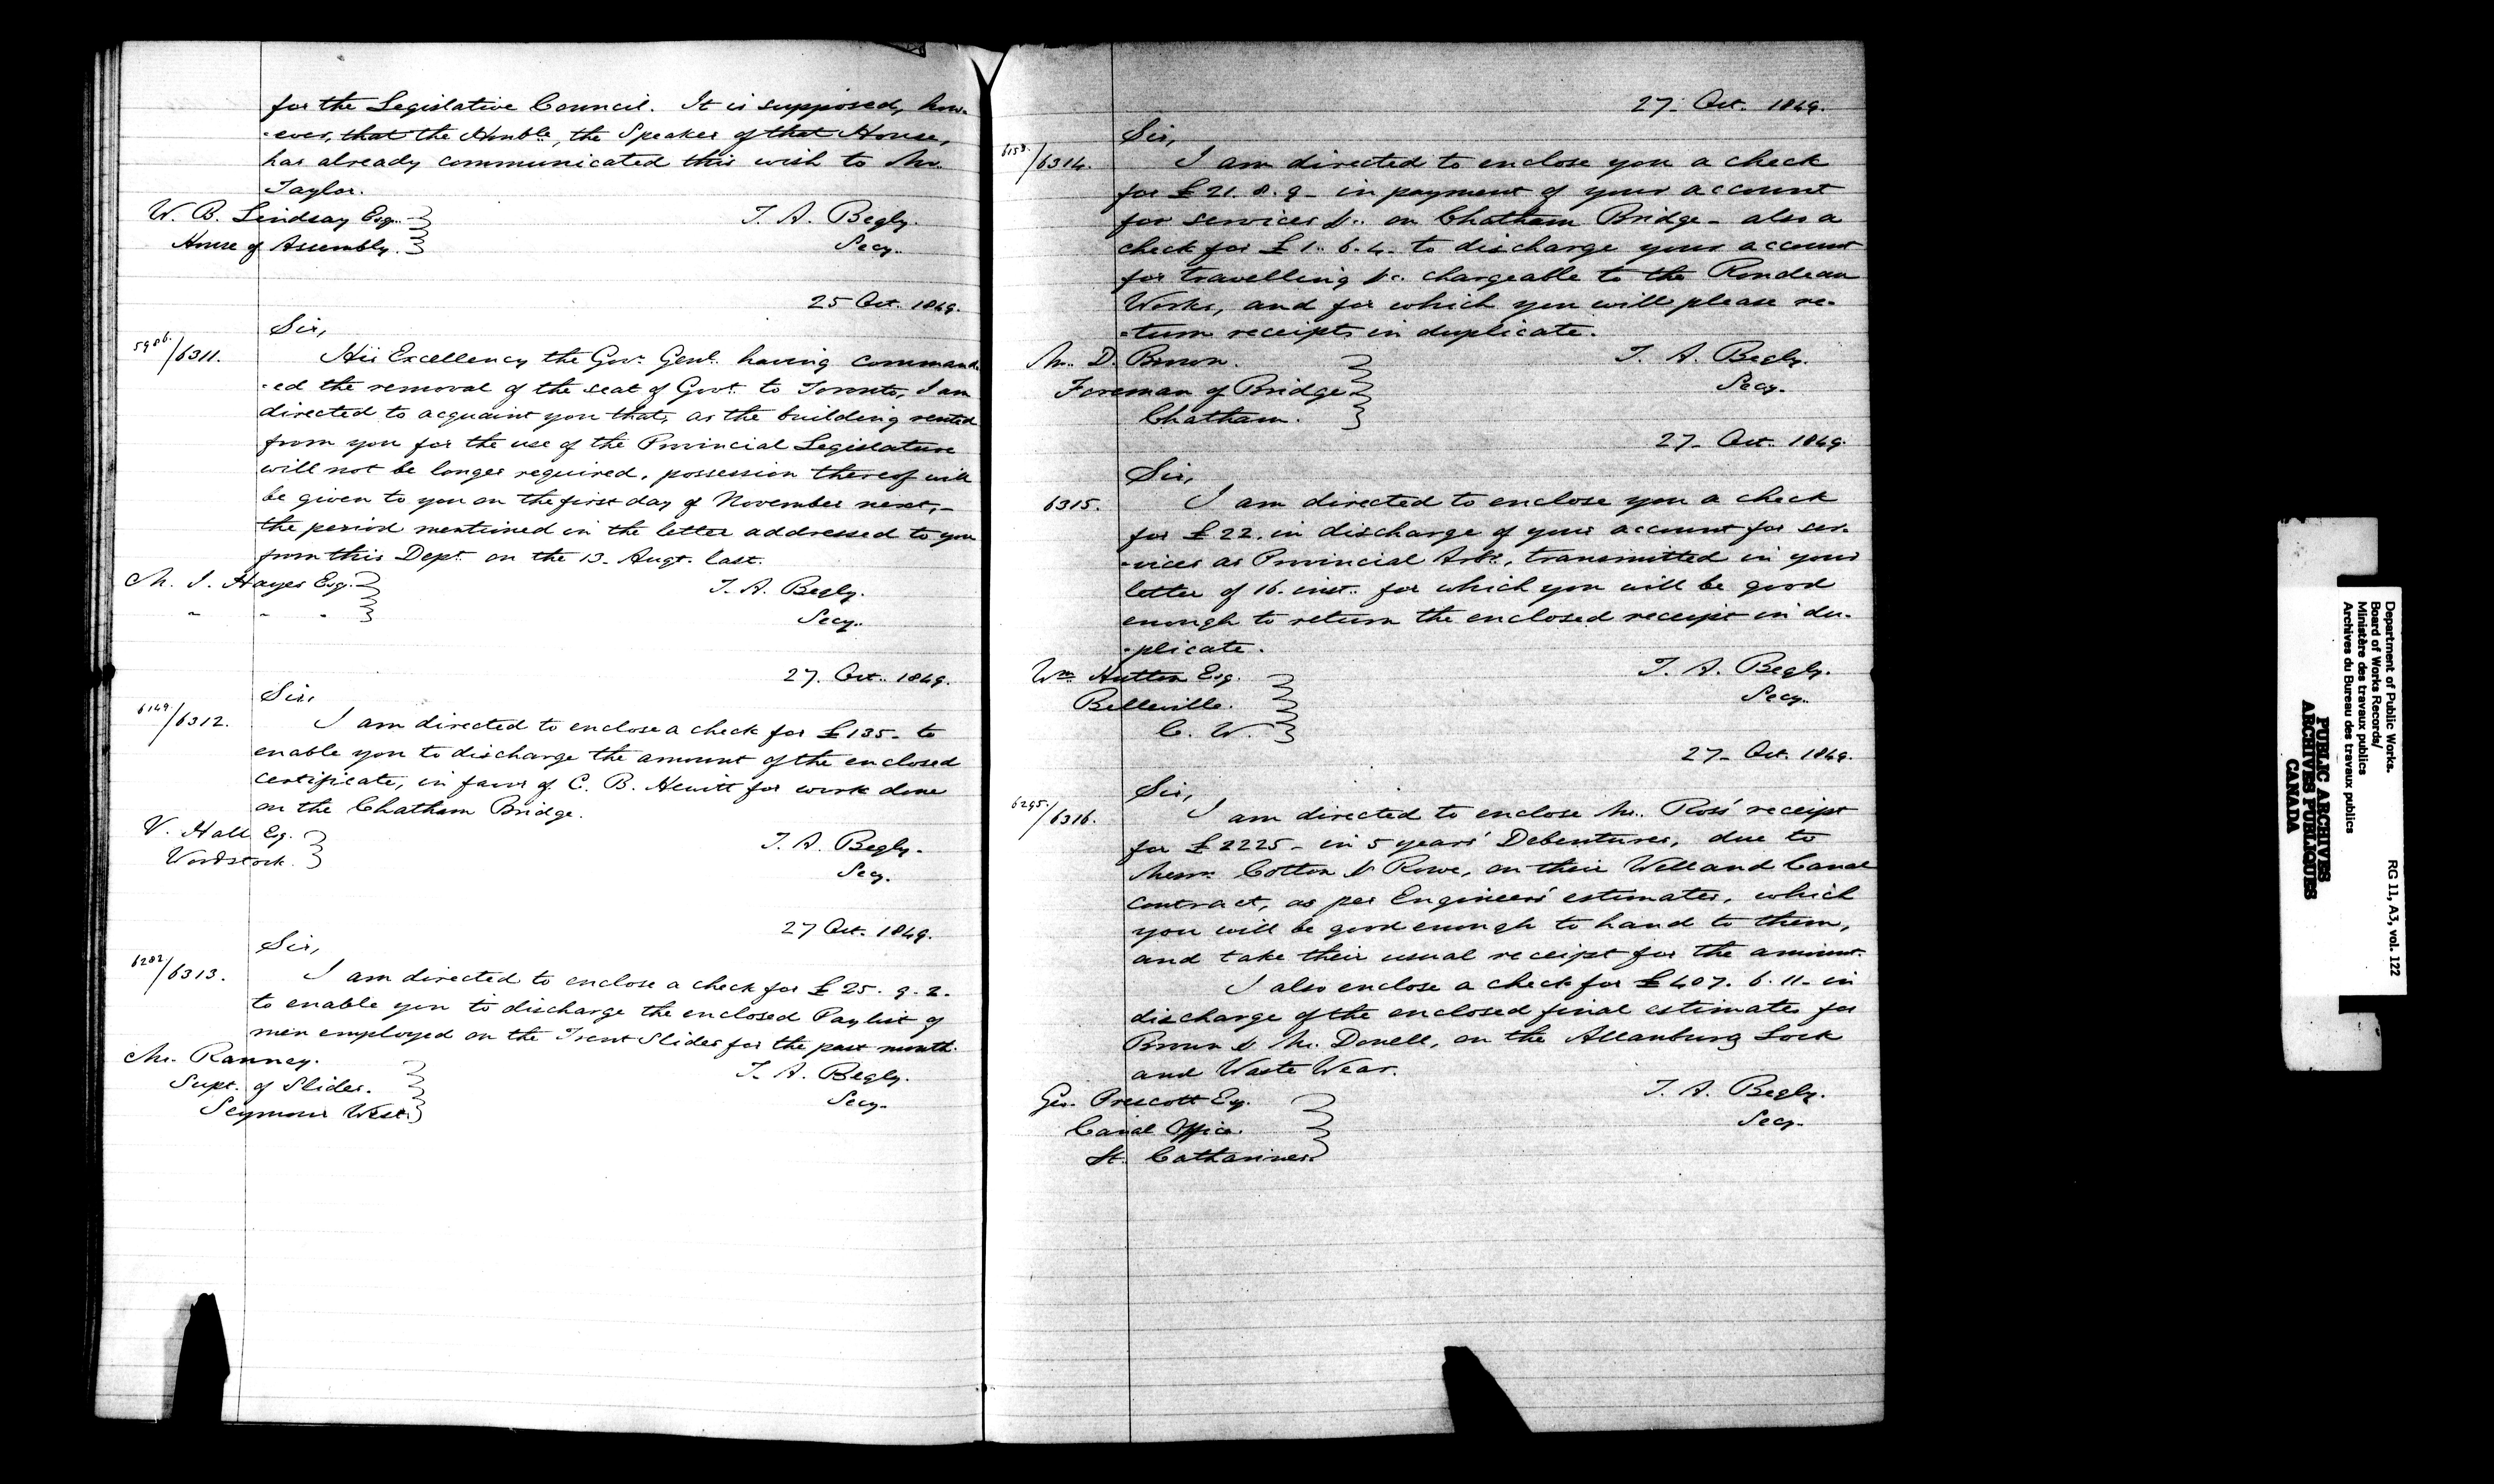 for the Legislative Council. It is supposed, how-
-ever, that the Honble, the Speaker of that House,
has already communicated this wish to Mr.
Taylor.
W. B. Lindsay Esq.
House of Assembly.
T. A. Begly.
Secy.
25 Oct. 1849.
Sir,
5986./6311.
His Excellency the Govr. Genl. having command-
-ed the removal of the seat of Govt. to Toronto, I am
directed to acquaint you that, as the building rented
from you for the use of the Provincial Legislature
will not be longer required, possession thereof will
be given to you on the first day of November next,-
the period mentioned in the letter addressed to you
from this Dept. on the 13. Augt. last.
M. J. Hayes Esq.
" " "
T. A. Begly.
Secy.
27. Oct. 1849.
Sir,
6149./6312.
I am directed to enclose a check for £135- to
enable you to discharge the amount of the enclosed
certificate, in favor of C. B. Hewitt for work done
on the Chatham Bridge.
V. Hall Esq.
Woodstock.
T. A. Begly.
Secy.
27 Oct. 1849.
Sir,
6282/6313.
I am directed to enclose a check for £25. 9. 2.
to enable you to discharge the enclosed Paylist of
men employed on the Trent Slides for the past month.
Mr. Ranney.
Supt. of Slides.
Seymour West.
T. A. Begly.
Secy.
27. Oct. 1849.
Sir,
6153./6314.
I am directed to enclose you a check
for £21. 8. 9- in payment of your account
for services &c. on Chatham Bridge- also a
check for £1. 6. 4. to discharge your account
for travelling &c. chargeable to the Rondeau
Works, and for which you will please re-
-turn receipts in duplicate.
Mr. D. Brown.
Foreman of Bridge
Chatham.
T. A. Begly.
Secy.
27- Oct. 1849.
Sir,
6315.
I am directed to enclose you a check
for £22. in discharge of your account for ser-
-vices as Provincial Arbr., transmitted in your
letter of 16. inst. for which you will be good
enough to return the enclosed receipt in du-
-plicate.
Wm. Hutton Esq.
Belleville.
C. W.
T. A. Begly.
Secy.
27- Oct. 1849.
Sir,
6295./6316.
I am directed to enclose Mr. Ross' receipt
for £2225- in 5 years' Debentures, due to
Messrs. Cotton & Rowe, on their Welland Canal
contract, as per Engineers' estimates, which
you will be good enough to hand to them,
and take their usual receipt for the amount.
I also enclose a check for £407. 6. 11- in
discharge of the enclosed final estimates for
Brown & Mc. Donell, on the Allanburg Lock
and Waste Wear.
Geo. Prescott Esq.
Canal Office.
St. Catharines.
T. A. Begly.
Secy.
Department of Public Works.
Board of Works Records/
Ministère des travaux publics
Archives du Bureau des travaux publics
RG 11, A3, vol. 122
PUBLIC ARCHIVES
ARCHIVES PUBLIQUES
CANADA